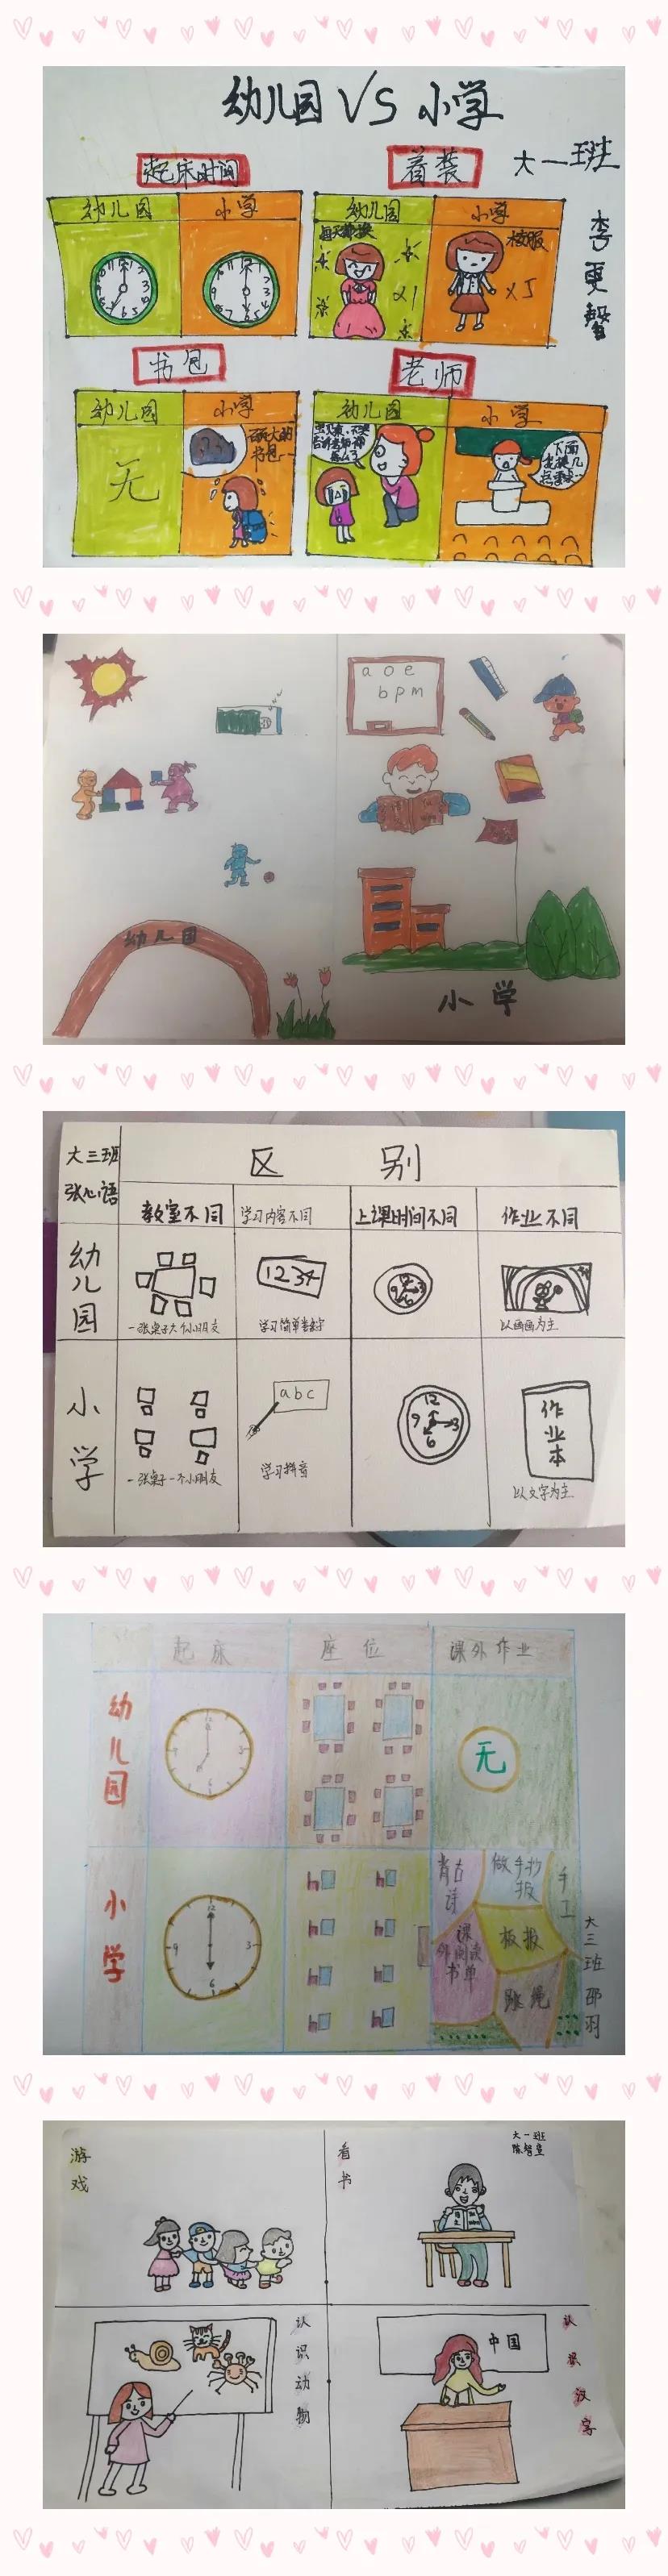 幼儿园 VS 小学
大一班
李更馨
起床时间
幼儿园 小学
着装
幼儿园 小学
每天都换
x1
校服
x5
书包
幼儿园 小学
无
书包
老师
幼儿园 小学
下面
幼儿园
a o e
b p m
小学
大三班
张心语
区别
教室不同 学习内容不同 上课时间不同 作业不同
幼儿园
一张桌子六个小朋友
1234
学习简单数字
以画画为主
小学
一张桌子一个小朋友
abc
学习拼音
12
9 3
6
作业本
以文字为主
起床 座位 课外作业
幼儿园
无
小学
12
9 3
6
背古诗
做手抄报
手工
课外阅读书单
板报
跳绳
大三班 邵羽
游戏
看书
大一班
认识动物
中国
认识汉字